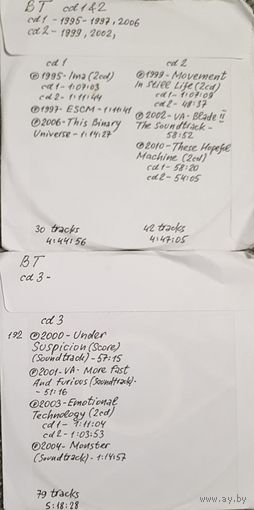 BT cd 1&2
cd 1 - 1995-1997, 2006
cd 2 - 1999, 2002,
cd 1
℗1995-Ima (2cd)
cd 1 - 1:07:03
cd 2 - 1:11:44
℗1997-ESCM-1:11:41
℗2006-This Binary
Universe - 1:14:27
30 tracks
4:44:56
cd 2
℗1999-Movement
In Still Life (2cd)
cd 1 - 1:07:09
cd 2 - 48:37
℗2002-VA-Blade II
The Soundtrack -
58:52
℗2010-These Hopeful
Machine (2cd)
cd 1 - 58:20
cd 2 - 54:05
42 tracks
4:47:05
BT
cd 3 -
cd 3
192 ℗2000-Under
Suspicion (Score)
(Soundtrack) - 57:15
℗2001-VA-More Fast
And Furious (Soundtrack)-
- 51:16
℗2003-Emotional
Technology (2cd)
cd 1 - 1:11:04
cd 2 - 1:03:53
℗2004-Monster
(Soundtrack) - 1:14:57
79 tracks
5:18:28
ay.by